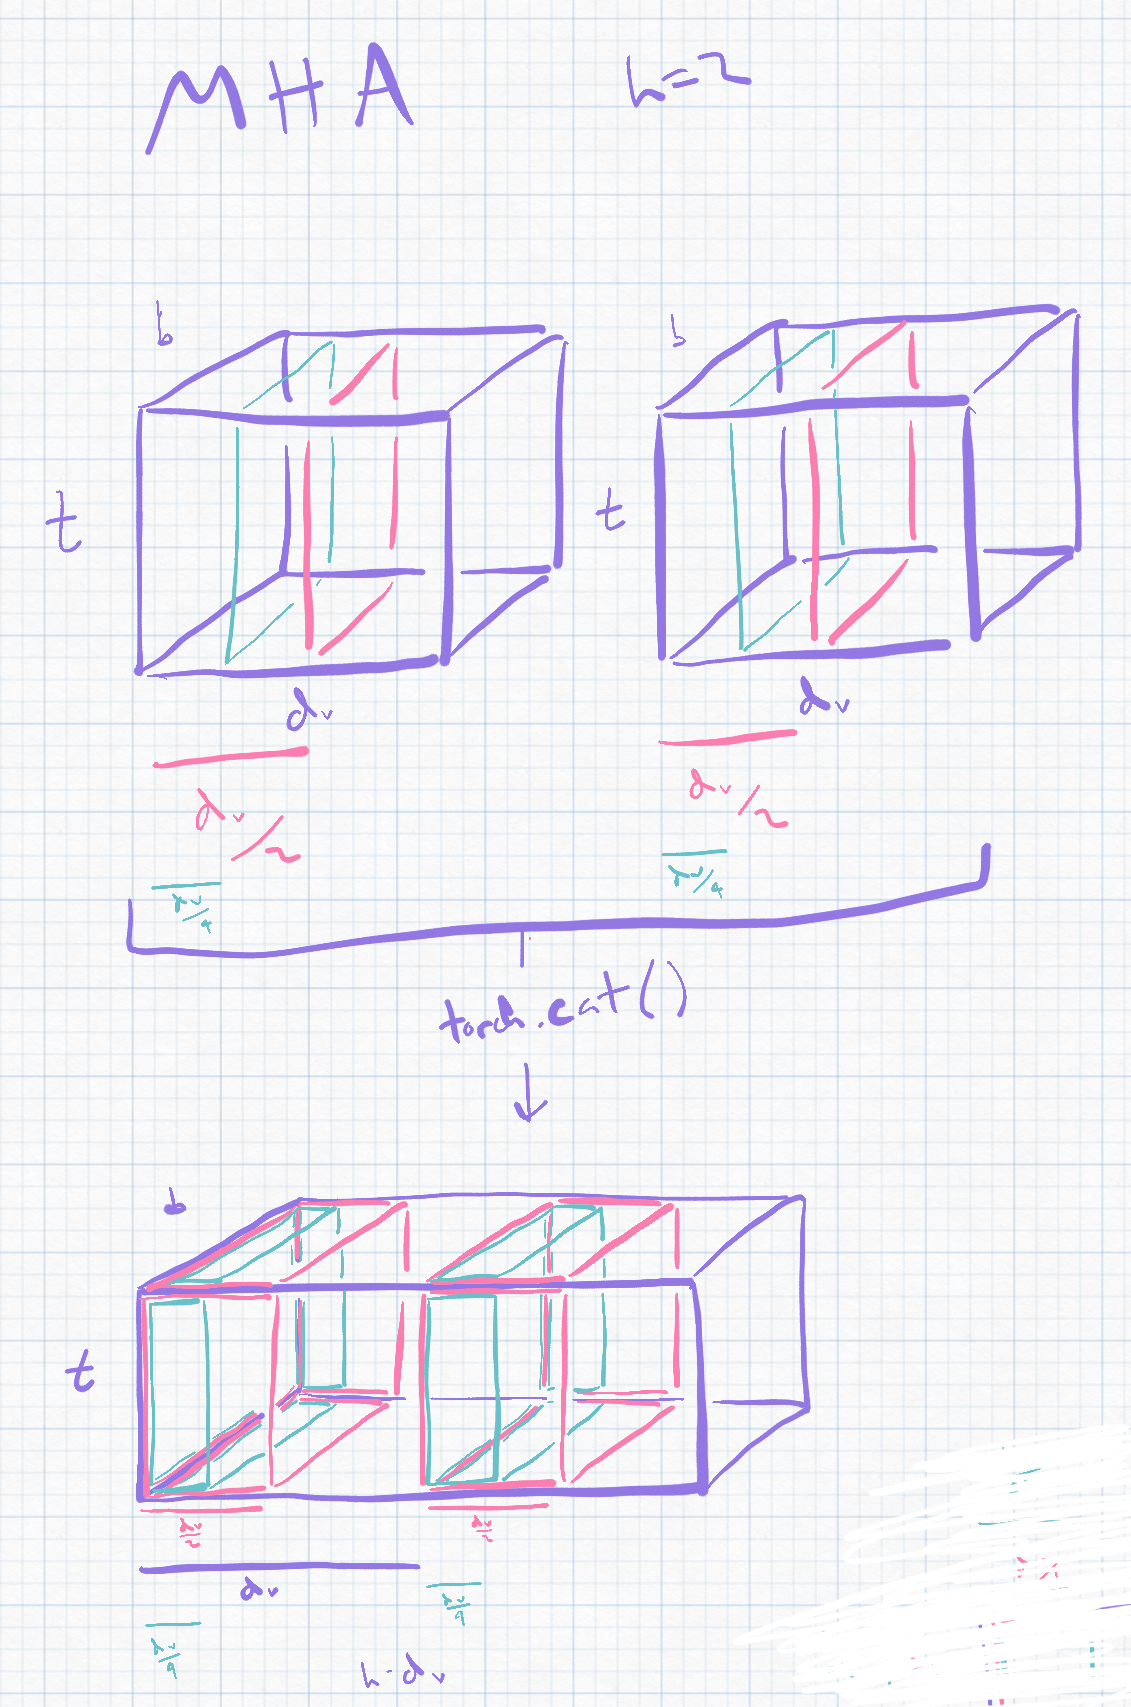 MHA h=2
b b
t t
dv dv
dv/2 dv/2
dv/4 dv/4
torch.cat()
b
t
dv/2 dv/2
dv dv/4
dv/4
h·dv